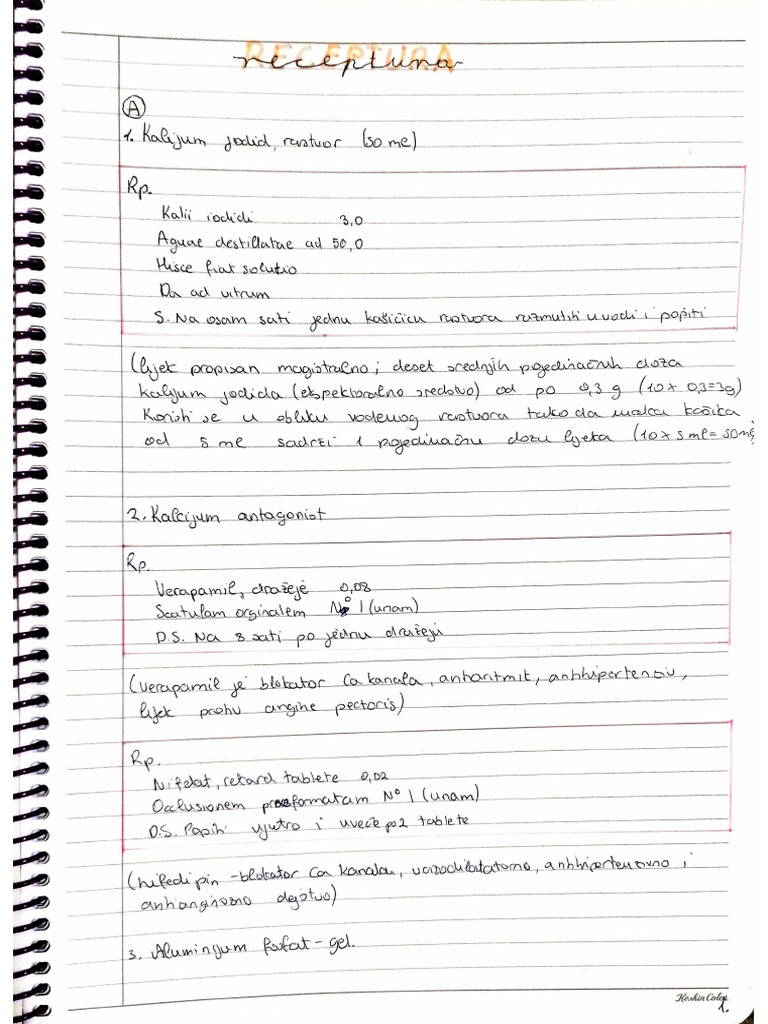 RECEPTURA
receptura
A
1. Kalijum jodid, rastvor (50 ml)
Rp.
Kalii iodidi 3,0
Aquae destillatae ad 50,0
Misce fiat solutio
Da ad vitrum
S. Na osam sati jednu kašičicu rastvora razmutiti u vodi i popiti
(lijek propisan magistralno; deset srednjih pojedinačnih doza
kalijum jodida (ekspektoralno sredstvo) od po 0,3 g (10x 0,3=3g)
Koristi se u obliku vodenog rastvora tako da malca kašika
od 5 ml sadrzi 1 pojedinačnu dozu lijeka (10x5ml=50ml
2. Kalcijum antagonist
Rp.
Verapamil, dražeje 0,08
Scatulam orginalem N° I (unam)
D.S. Na 8 sati po jednu dražeju
(verapamil je blokator Ca kanala, antiaritmik, antihipertenziv,
lijek protiv angine pectoris)
Rp.
Nifelat, retard tablete 0,02
Occlusionem praeformatam N° I (unam)
D.S. Popiti ujutro i uveče po 2 tablete
(nifedipin - blokator Ca kanala, vazodilatatorno, antihipertenzivno i
antianginozno dejstvo)
3. Aluminijum fosfat - gel.
1.